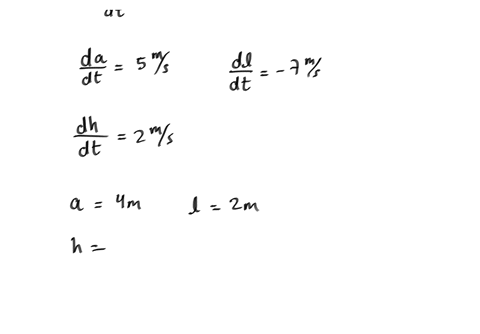 da/dt = 5 m/s dl/dt = -7 m/s
dh/dt = 2 m/s
a = 4m l = 2m
h =